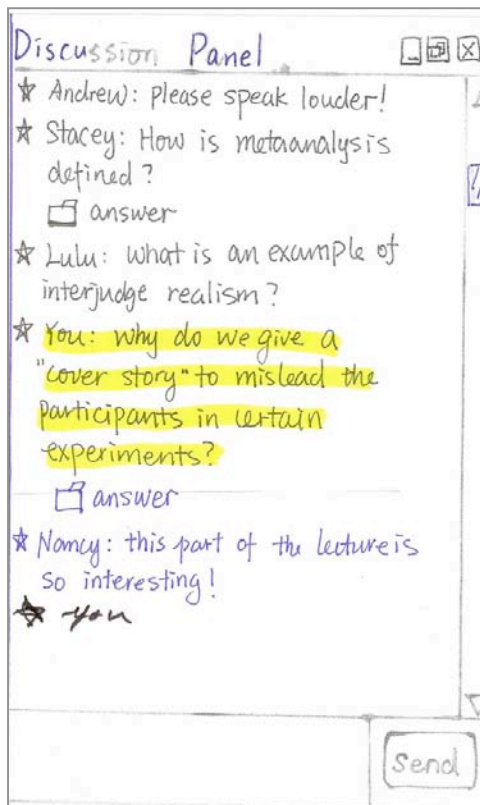 Discussion Panel
Andrew: please speak louder!
Stacey: How is metaanalysis
defined?
answer
Lulu: what is an example of
interjudge realism?
You: why do we give a
"cover story" to mislead the
participants in certain
experiments?
answer
Nancy: this part of the lecture is
so interesting!
you
Send